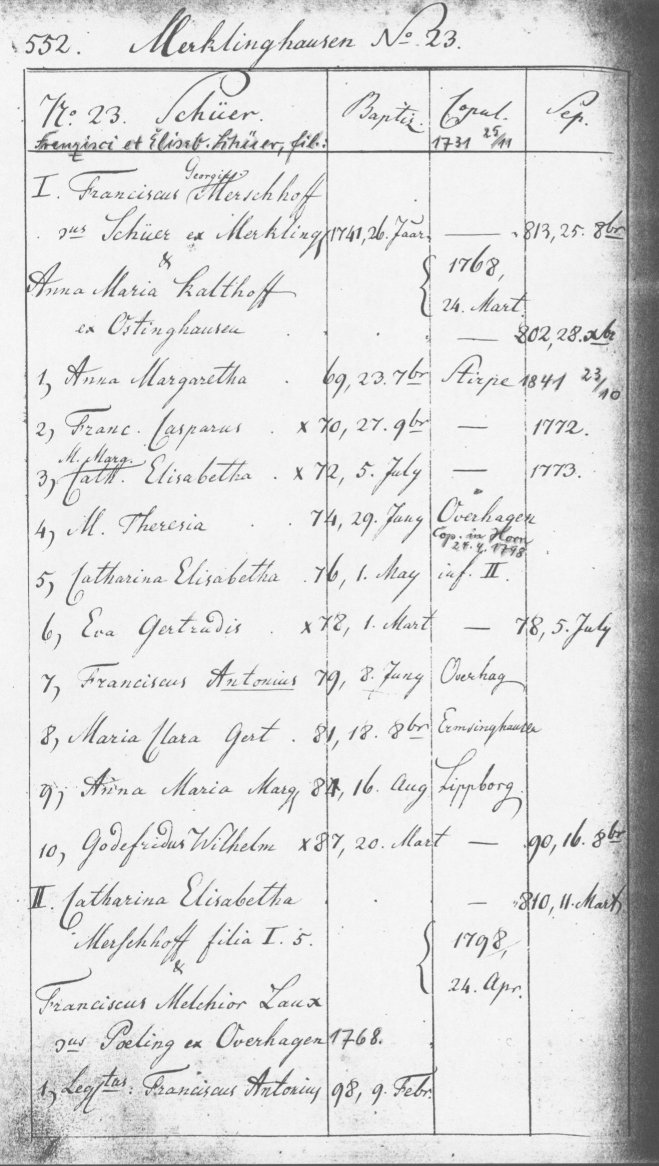 552. Merklinghausen No. 23.
No. 23. Schüer. Baptiz. Copul. Sep.
Franzisci et Elisab. Schüer, fil.: 1731 25/11
Georgius
I. Franciscus Merschhoff
dus Schüer ex Merkling 1741, 26. Jaar. — 813, 25. 8br
&
Anna Maria Kalthoff { 1768,
24. Mart.
ex Ostinghausen — 802, 28. xbr
1, Anna Margaretha . 69, 23. 7br Stirpe 1841 23/10
2, Franc. Casparus . x 70, 27. 9br — 1772.
M. Marg.
3, Cath. Elisabetha . x 72, 5. July — 1773.
4, M. Theresia . . 74, 29. Juny Overhagen
Cop. in Horn
24.4.1798
5, Catharina Elisabetha . 76, 1. May inf. II.
6, Eva Gertrudis . x 78, 1. Mart — 78, 5. July
7, Franciscus Antonius 79, 8. Juny Overhag
8, Maria Clara Gert . 81, 18. 8br Ermsinghausen
9, Anna Maria Marg 84, 16. Aug Lippborg
10, Godefridus Wilhelm x 87, 20. Mart — 90, 16. 8br
II. Catharina Elisabetha . . — 810, 11. Mart
Merschhoff filia I. 5. { 1798,
&
24. Apr.
Franciscus Melchior Laux
dus Poeling ex Overhagen 1768.
1, Leg tus: Franciscus Antonius 98, 9. Febr.